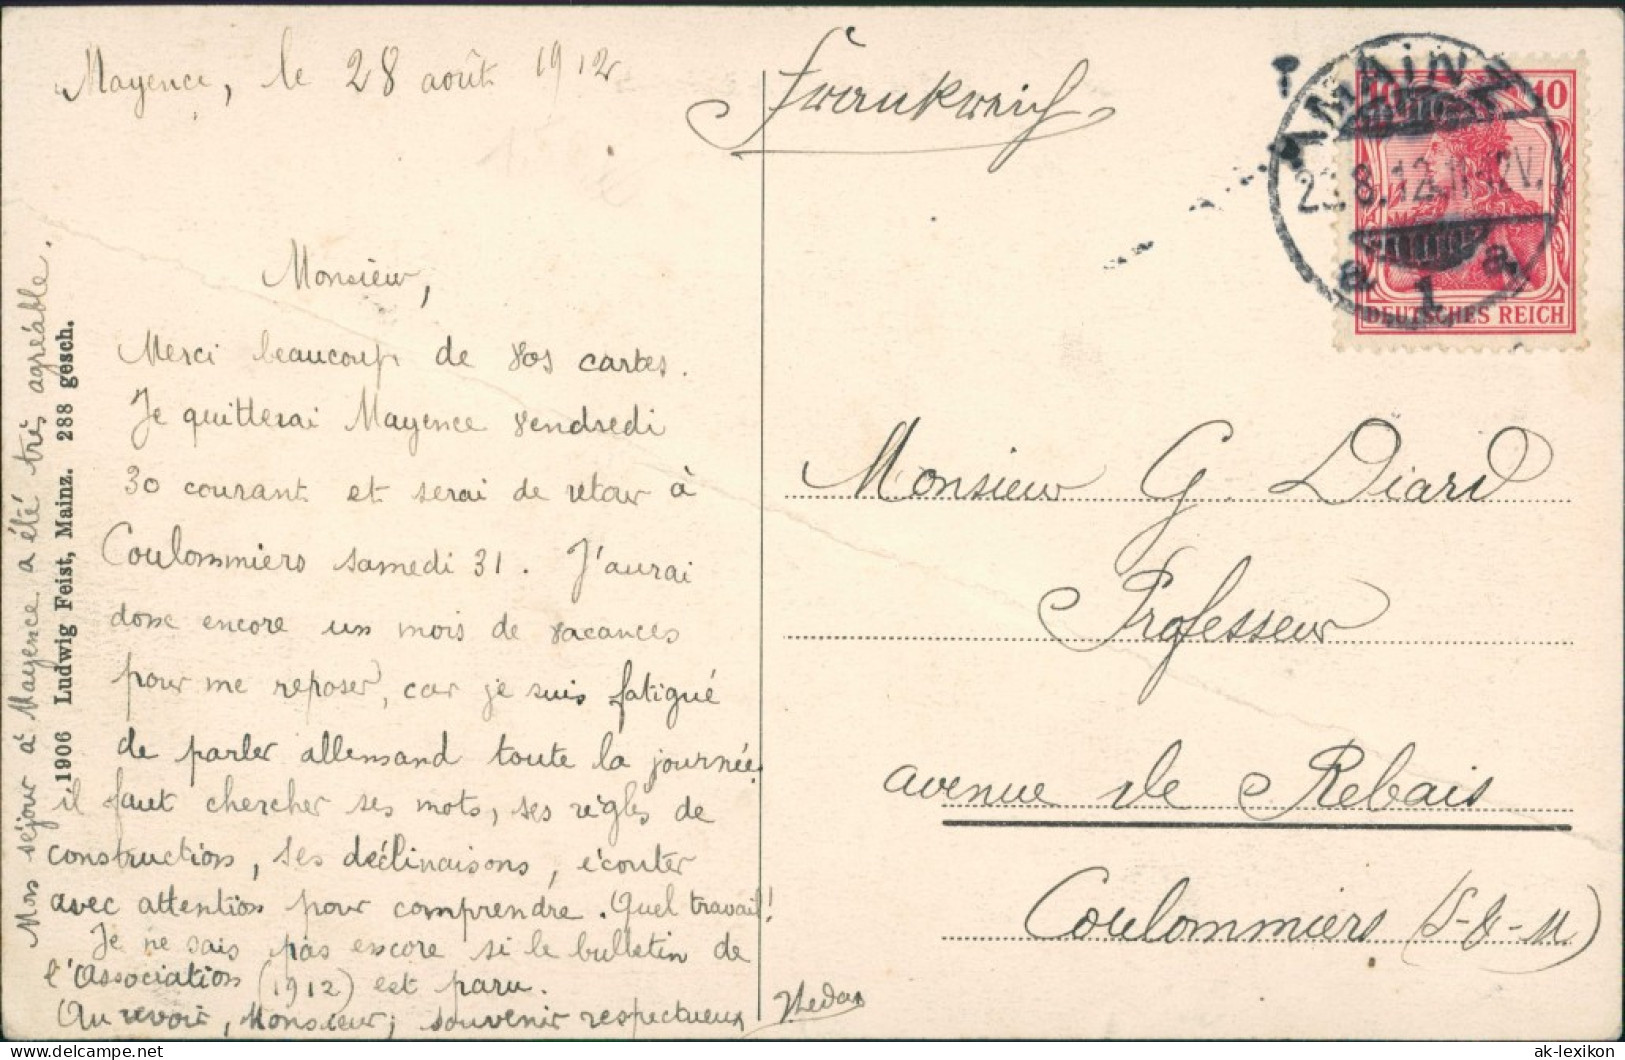 Mayence, le 28 août 1912
Monsieur,
Merci beaucoup de vos cartes.
Je quitterai Mayence vendredi
30 courant et serai de retour à
Coulommiers samedi 31. J'aurai
donc encore un mois de vacances
pour me reposer, car je suis fatigué
de parler allemand toute la journée
il faut chercher ses mots, ses règles de
construction, ses déclinaisons, écouter
avec attention pour comprendre. Quel travail!
Je ne sais pas encore si le bulletin de
l'Association (1912) est paru.
Au revoir, Monsieur, souvenir respectueux
Mon séjour à Mayence a été très agréable.
1906 Ludwig Feist, Mainz. 288 gesch.
Frankreich
T
MAINZ
8.12.11-12V.
a. 1 a.
10
DEUTSCHES REICH
Monsieur G. Diard
Professeur
avenue de Rebais
Coulommiers (S-&-M)
ak-lexikon.de
ak-lexikon